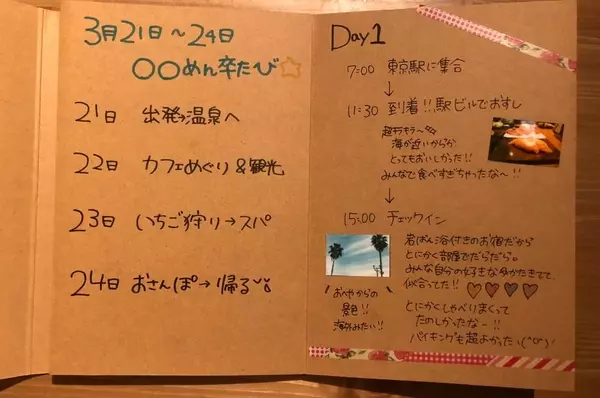 3月21日～24日
〇〇めん卒たび☆
21日 出発→温泉へ
22日 カフェめぐり&観光
23日 いちご狩り→スパ
24日 おさんぽ→帰る
Day1
7:00 東京駅に集合
↓
11:30 到着!!駅ビルでおすし
海が近いからか
とってもおいしかった!!
みんなで食べすぎちゃったな～!!
↓
15:00 チェックイン
岩ばん浴付きのお宿だから
とにかく部屋でだらだら。
みんな自分の好きなゆかたきてて、
似合ってた!!♡♡♡♡
"おへやからの
景色!!
海外みたい!!"
とにかくしゃべりまくって
たのしかったなー!!
バイキングも超よかった、(^o^)!